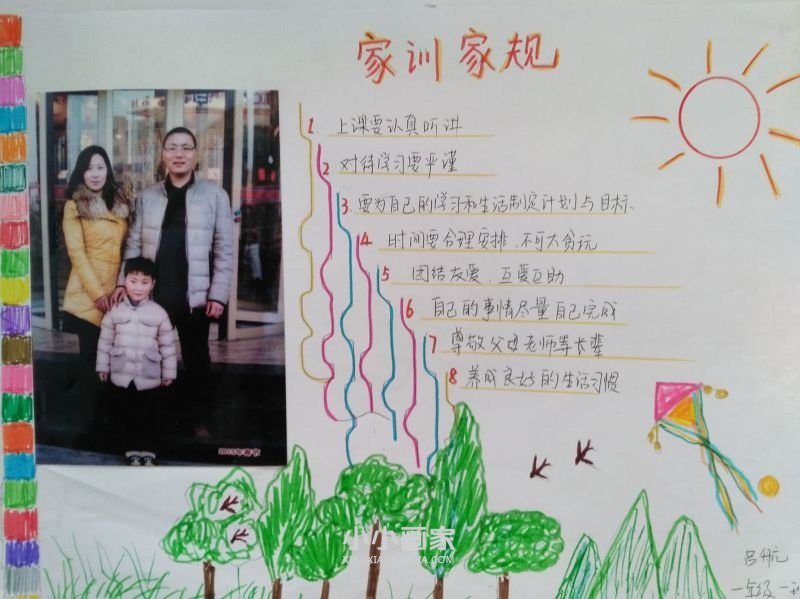 家训家规
1. 上课要认真听讲
2 对待学习要严谨
3. 要为自己的学习和生活制定计划与目标.
4 时间要合理安排、不可太贪玩
5 团结友爱、互爱互助
6 自己的事情尽量自己完成
7 尊敬父母老师等长辈
8 养成良好的生活习惯
2015年春节
小小画家
XIAOXIAOHUAJIA.COM
吕航
一年级一